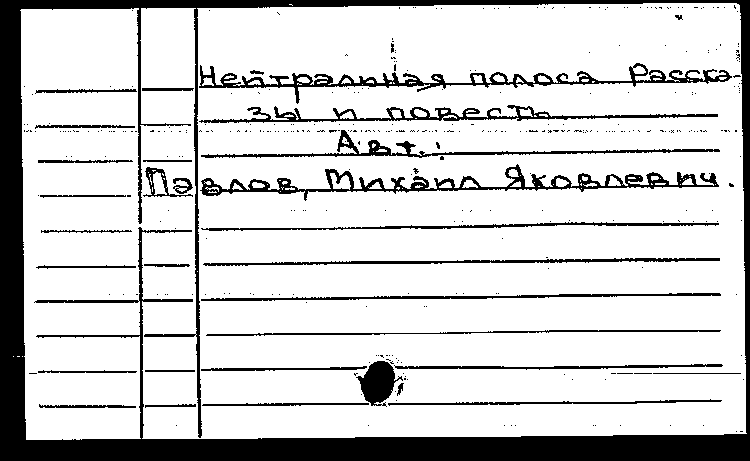 Нейтральная полоса Расска-
зы и повесть
Авт.:
Павлов, Михаил Яковлевич.